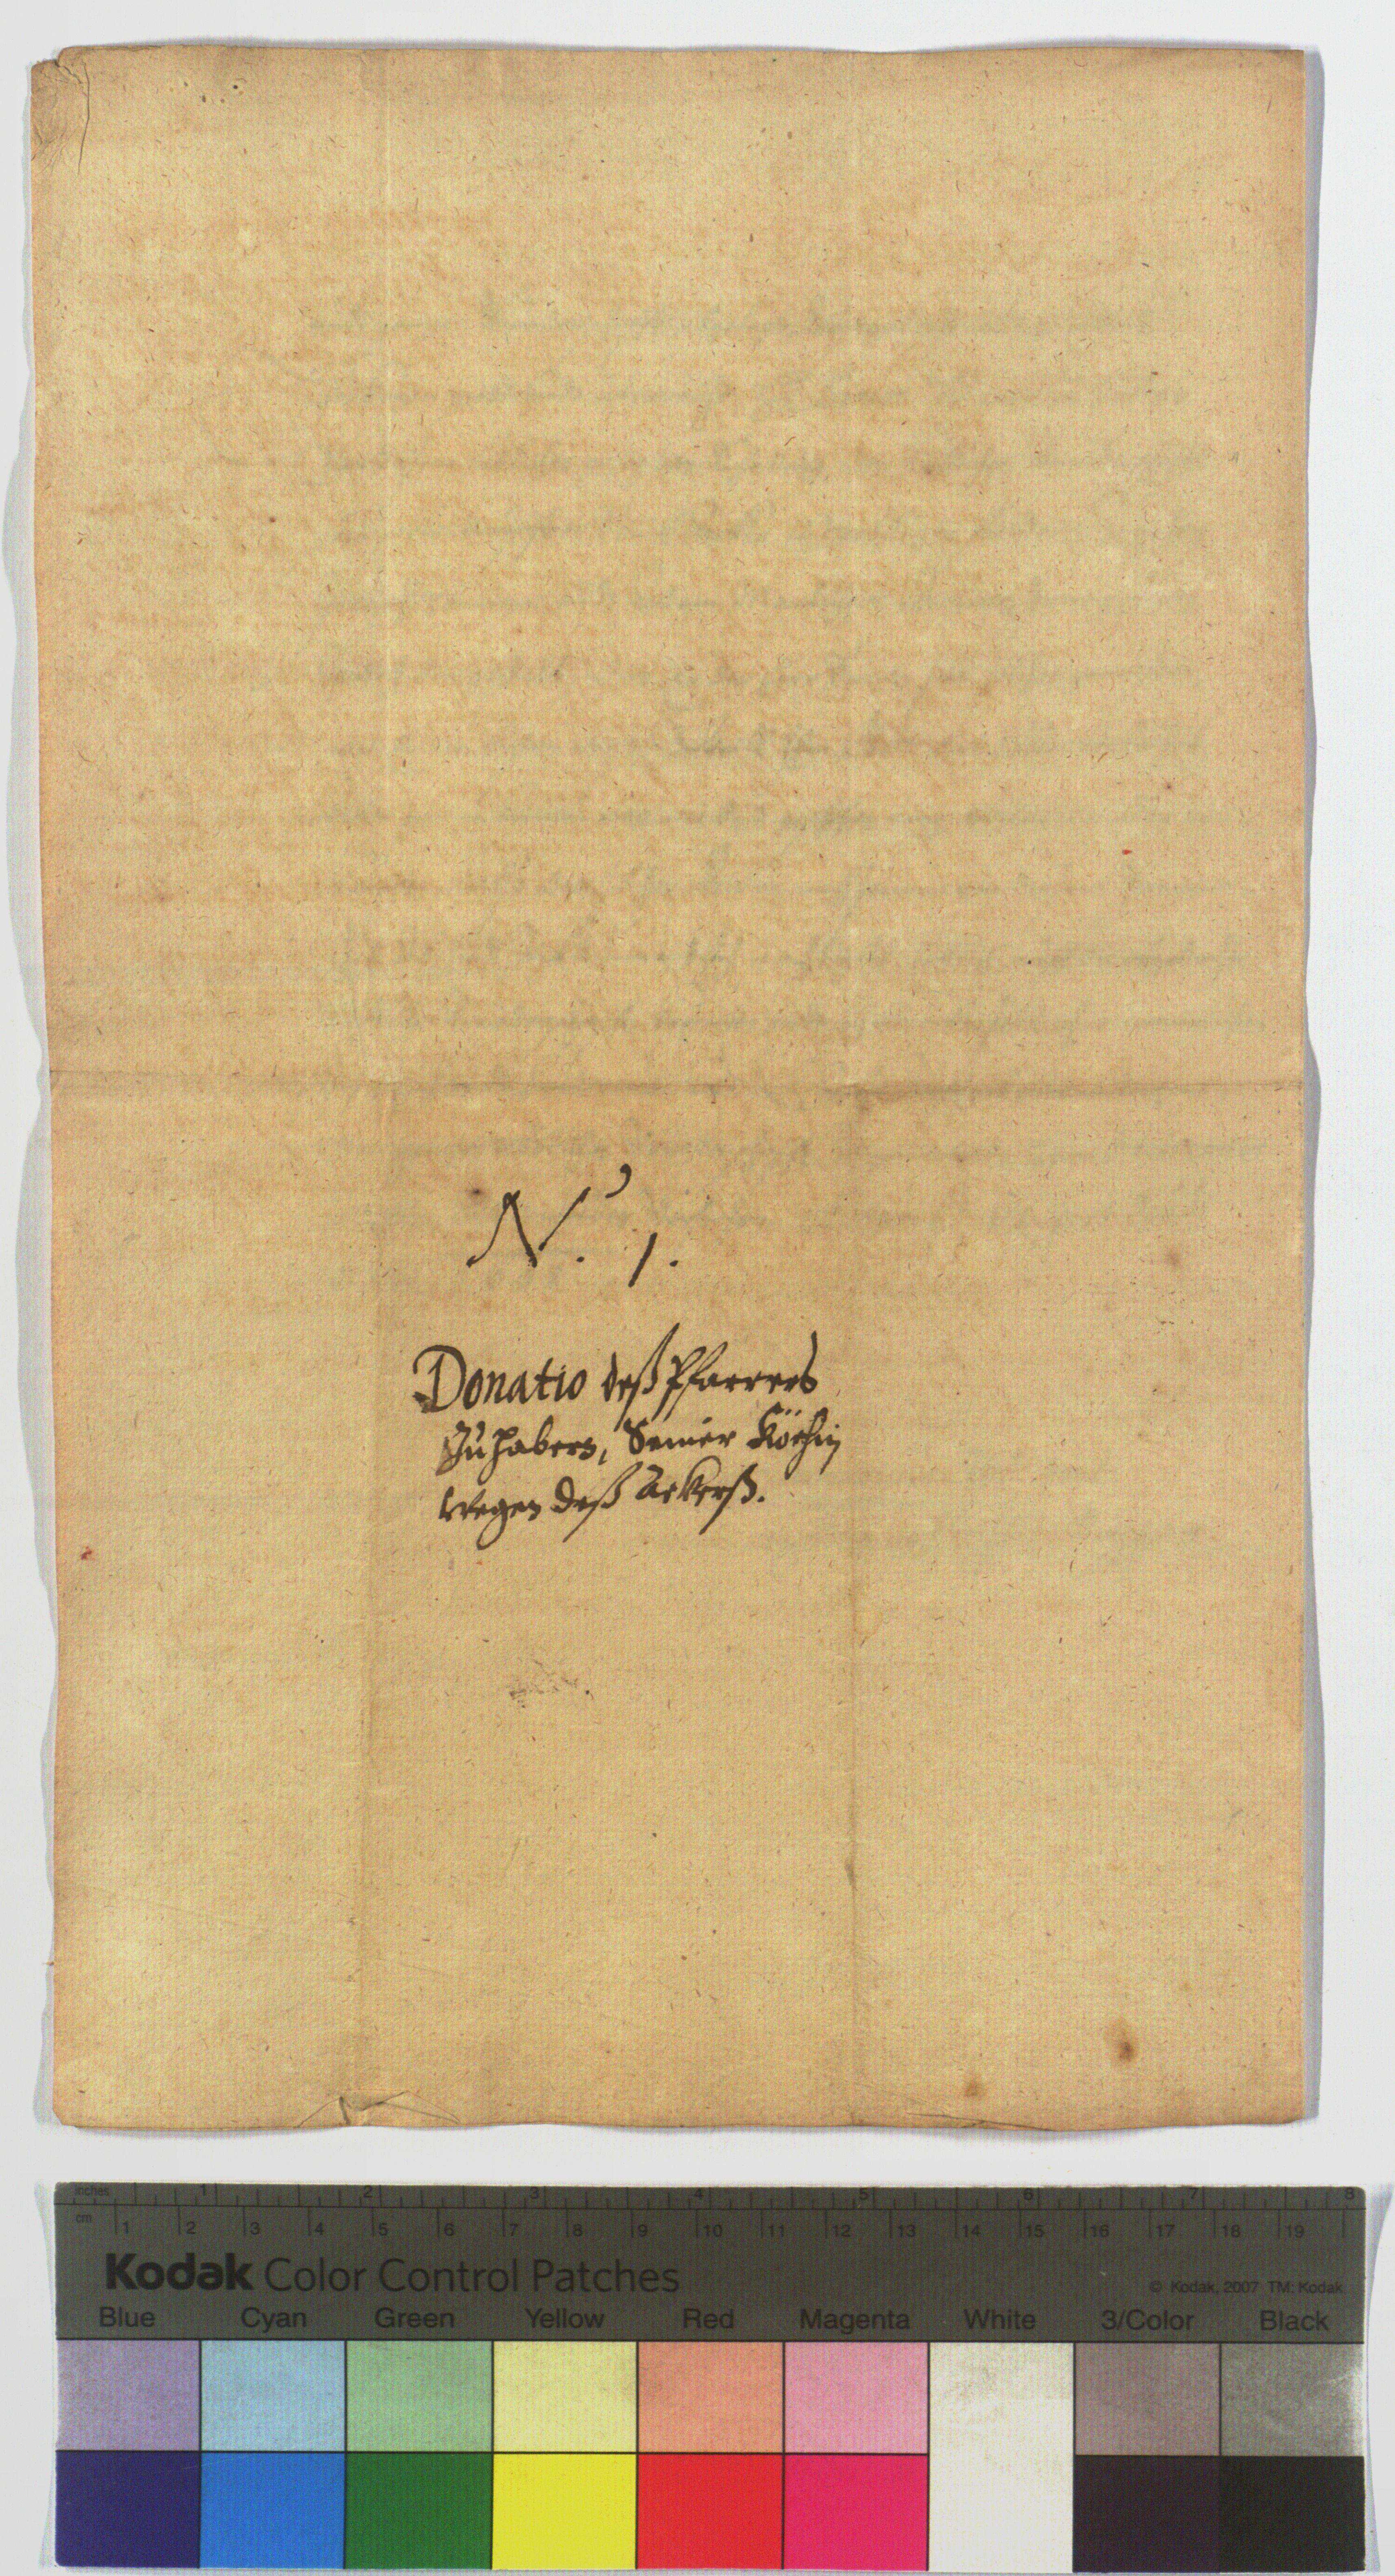 N.º 1.
Donatio deß Pfarrers
Zu habern, Seiner Köchin
wegen deß Ackerß.
inches 1 2 3 4 5 6 7 8
cm 1 2 3 4 5 6 7 8 9 10 11 12 13 14 15 16 17 18 19
Kodak Color Control Patches
© Kodak, 2007 TM: Kodak
Blue Cyan Green Yellow Red Magenta White 3/Color Black